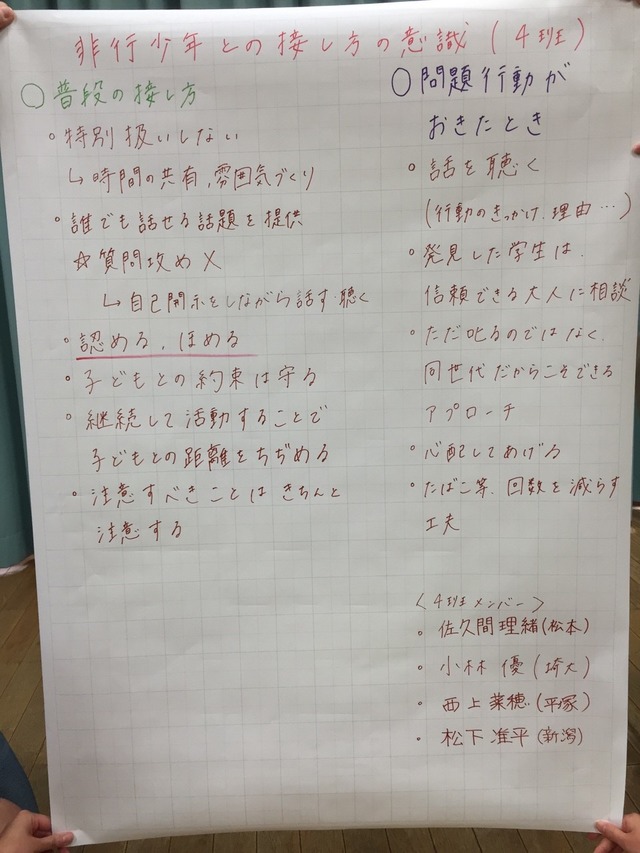 非行少年との接し方の意識(4班)
○普段の接し方
・特別扱いしない
↳時間の共有、雰囲気づくり
・誰でも話せる話題を提供
☆質問攻め×
↳自己開示をしながら話す・聴く
・認める、ほめる
・子どもとの約束は守る
・継続して活動することで
子どもとの距離をちぢめる
・注意すべきことはきちんと
注意する
○問題行動が
おきたとき
・話を聴く
(行動のきっかけ、理由…)
・発見した学生は、
信頼できる大人に相談
・ただ叱るのではなく、
同世代だからこそできる
アプローチ
・心配してあげる
・たばこ等、回数を減らす
工夫
<4班メンバー>
・佐久間理緒(松本)
・小林 優(埼大)
・西上菜穂(平塚)
・松下准平(新潟)